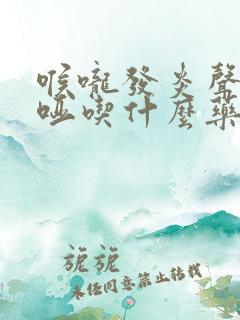 喉嚨發炎聲
啞喫什麼藥
旎旎
未经同意禁止转载